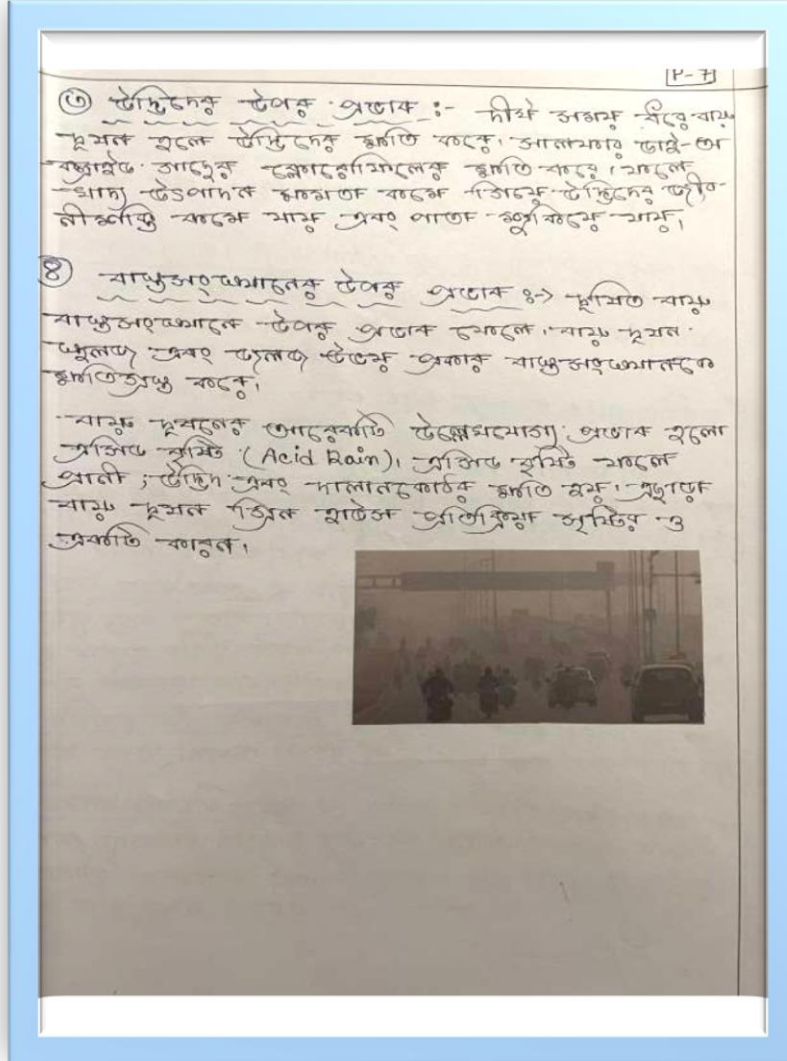 P-7
③ উদ্ভিদের উপর প্রভাব :- দীর্ঘ সময় ধরে বায়ু
দূষন হলে উদ্ভিদের ক্ষতি করে। সালফার ডাই-অ
ক্সাইড গাছের ক্লোরোফিলের ক্ষতি করে। ফলে
খাদ্য উৎপাদন ক্ষমতা কমে গিয়ে উদ্ভিদের জীব-
নীশক্তি কমে যায় এবং পাতা শুকিয়ে যায়।
৪ বাস্তুসংস্থানের উপর প্রভাব :-> দূষিত বায়ু
বাস্তুসংস্থানে উপর প্রভাব ফেলে। বায়ু দূষন
স্থলজ এবং জলজ উভয় প্রকার বাস্তুসংস্থানকে
ক্ষতিগ্রস্থ করে।
বায়ু দূষনের আরেকটি উল্লেখযোগ্য প্রভাব হলো
এসিড বৃষ্টি (Acid Rain)। এসিড বৃষ্টি ফলে
প্রানী, উদ্ভিদ এবং দালানকোঠার ক্ষতি হয়। এছাড়া
বায়ু দূষন গ্রিন হাউস প্রতিক্রিয়া সৃষ্টির ও
একটি কারন।